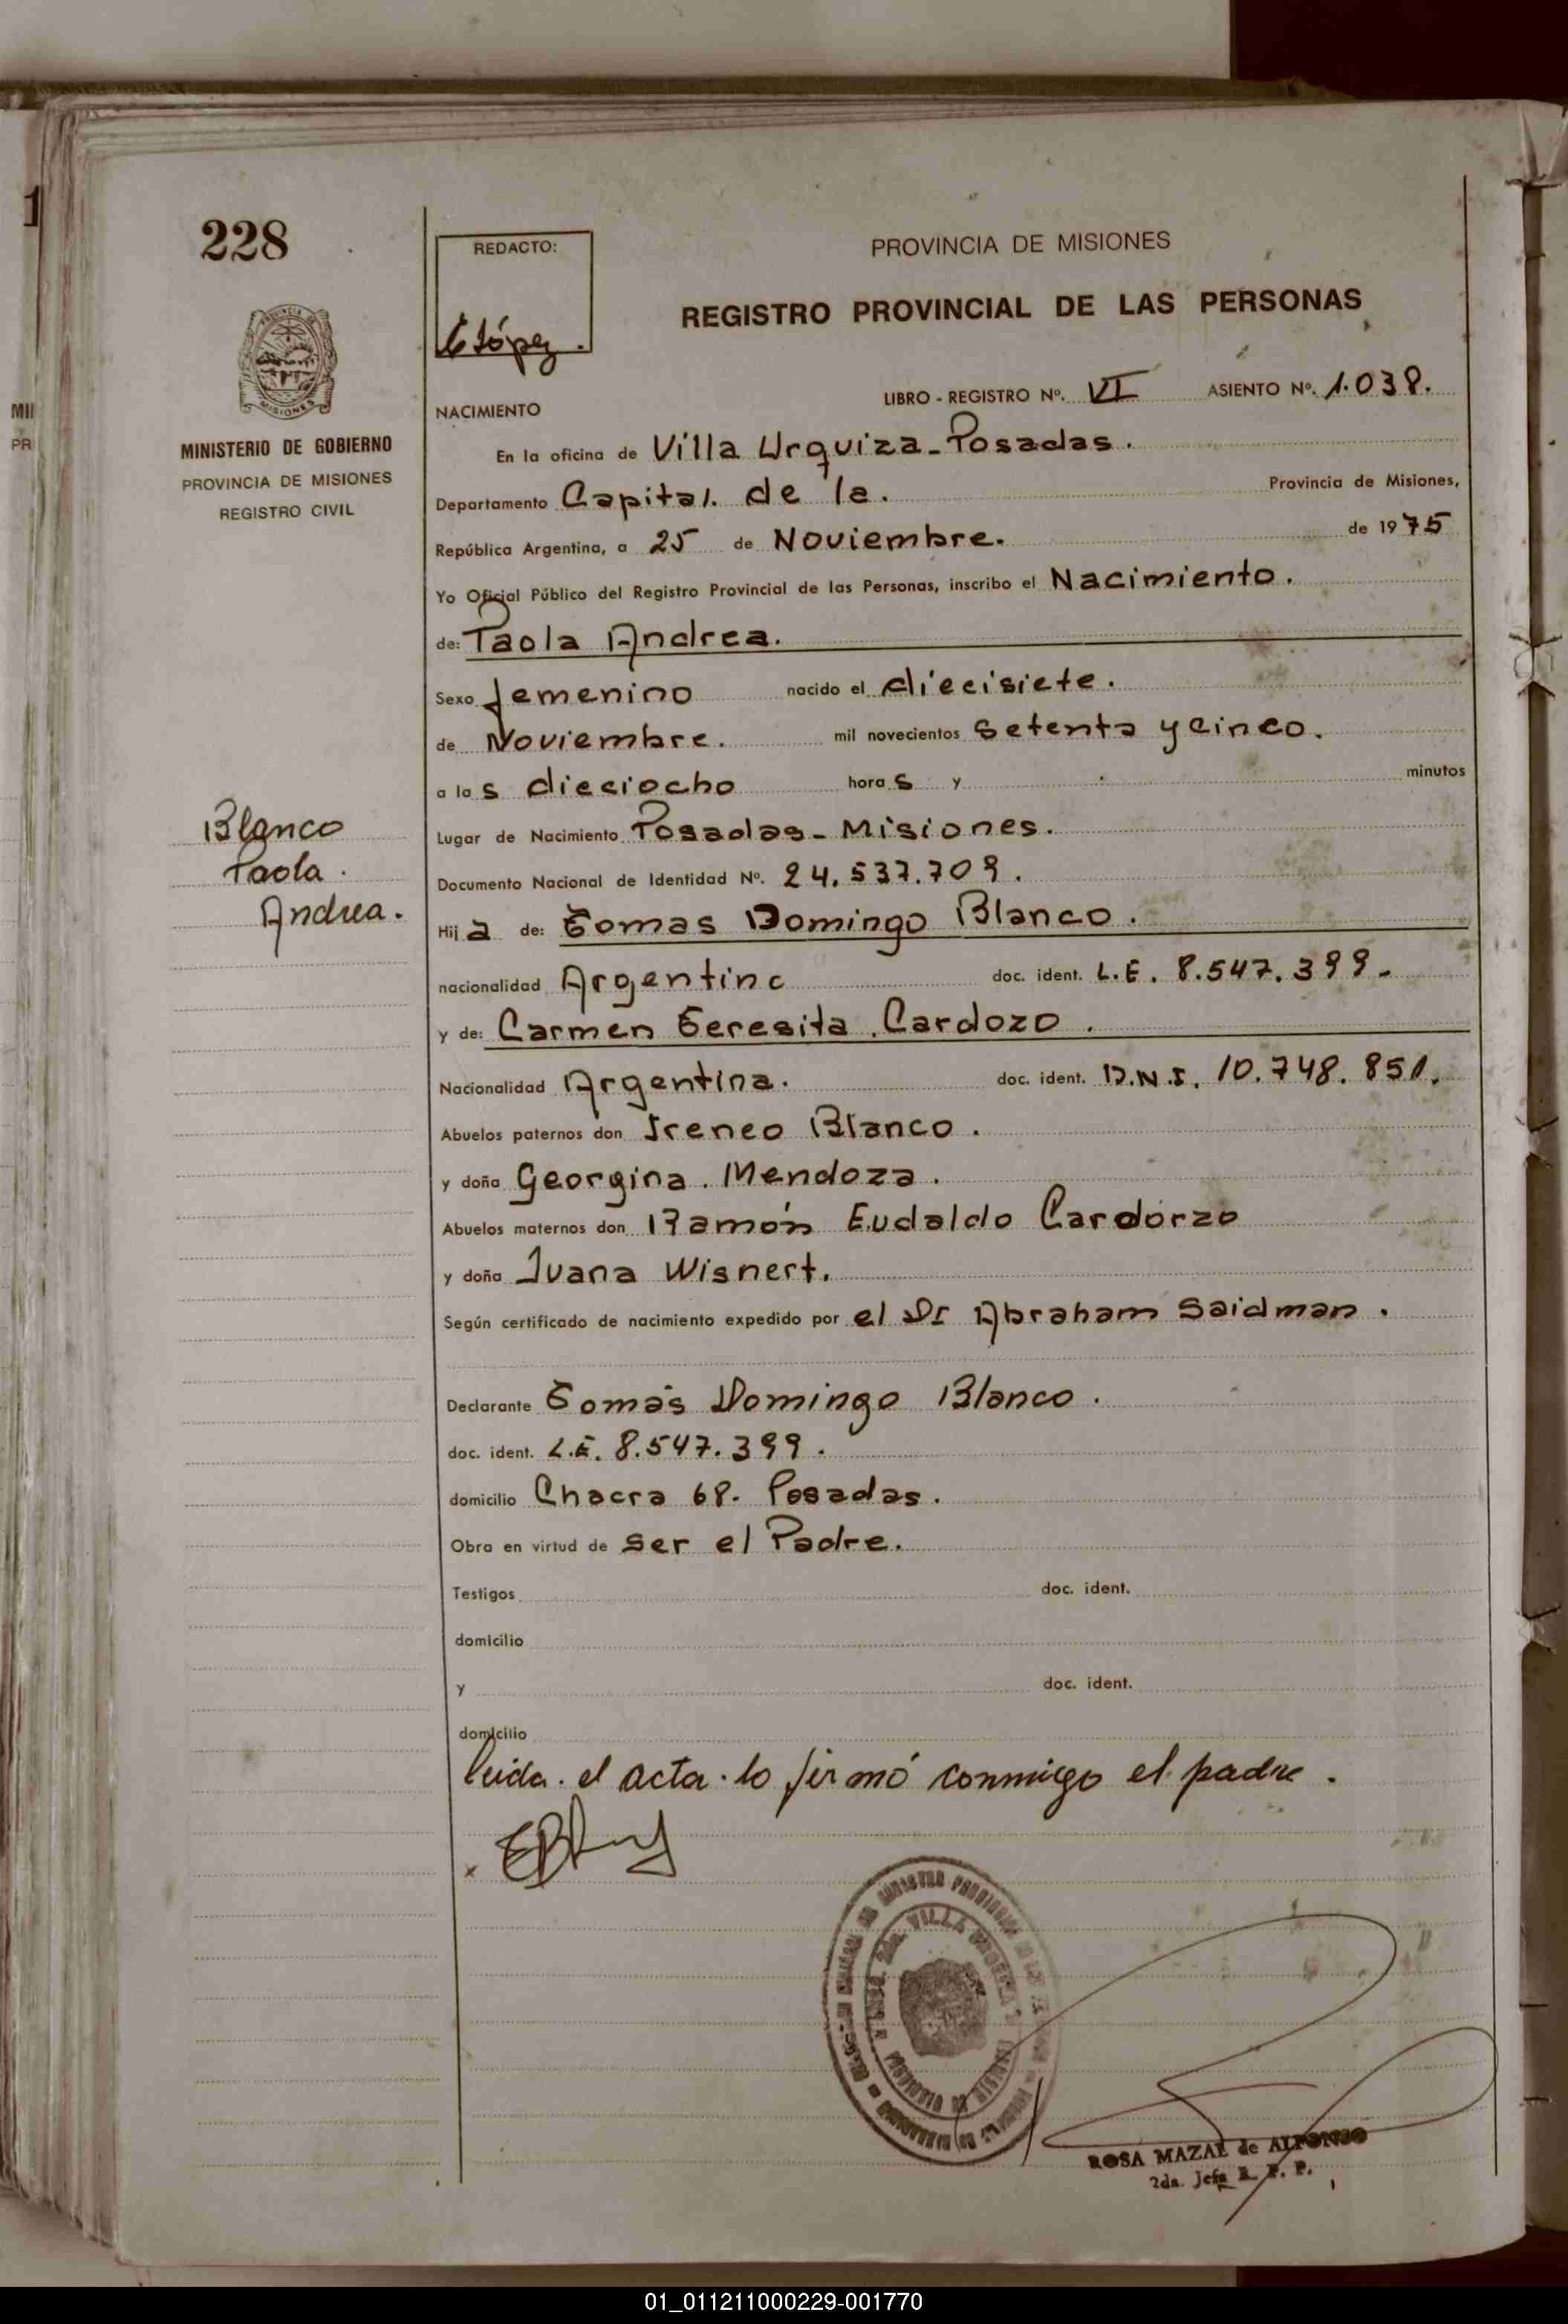 228
REDACTO:
López.
PROVINCIA DE MISIONES
REGISTRO PROVINCIAL DE LAS PERSONAS
MINISTERIO DE GOBIERNO
PROVINCIA DE MISIONES
REGISTRO CIVIL
LIBRO - REGISTRO Nº. VI ASIENTO Nº. 1.038.
NACIMIENTO
En la oficina de Villa Urquiza - Posadas.
Departamento Capital. de la. Provincia de Misiones,
República Argentina, a 25 de Noviembre. de 1975
Yo Oficial Público del Registro Provincial de las Personas, inscribo el Nacimiento.
de: Paola Andrea.
Sexo femenino nacido el diecisiete.
de Noviembre. mil novecientos setenta y cinco.
a las dieciocho horas y minutos
Blanco
Paola.
Andrea.
Lugar de Nacimiento Posadas - Misiones.
Documento Nacional de Identidad Nº. 24.537.709.
Hija de: Tomas Domingo Blanco.
nacionalidad Argentino doc. ident. L.E. 8.547.399.
y de: Carmen Teresita Cardozo.
Nacionalidad Argentina. doc. ident. D.N.I. 10.748.851.
Abuelos paternos don Ireneo Blanco.
y doña Georgina. Mendoza.
Abuelos maternos don Ramón Eudaldo Cardorzo
y doña Juana Wisnert.
Según certificado de nacimiento expedido por el Dr Abraham Saidman.
Declarante Tomás Domingo Blanco.
doc. ident. L.E. 8.547.399.
domicilio Chacra 68. Posadas.
Obra en virtud de ser el Padre.
Testigos doc. ident.
domicilio
y doc. ident.
domicilio
leida. el acta. lo firmó conmigo el padre.
ROSA MAZAL de ALFONSO
2da. Jefa R. P. P.
01_011211000229-001770